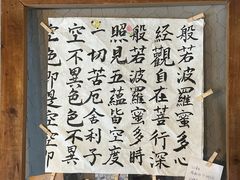 般若波羅蜜多心
經觀自在菩行深
般若波羅蜜多時
照見五蘊皆空度
一切苦厄舍利子
空不異色色不異
空色即是空空